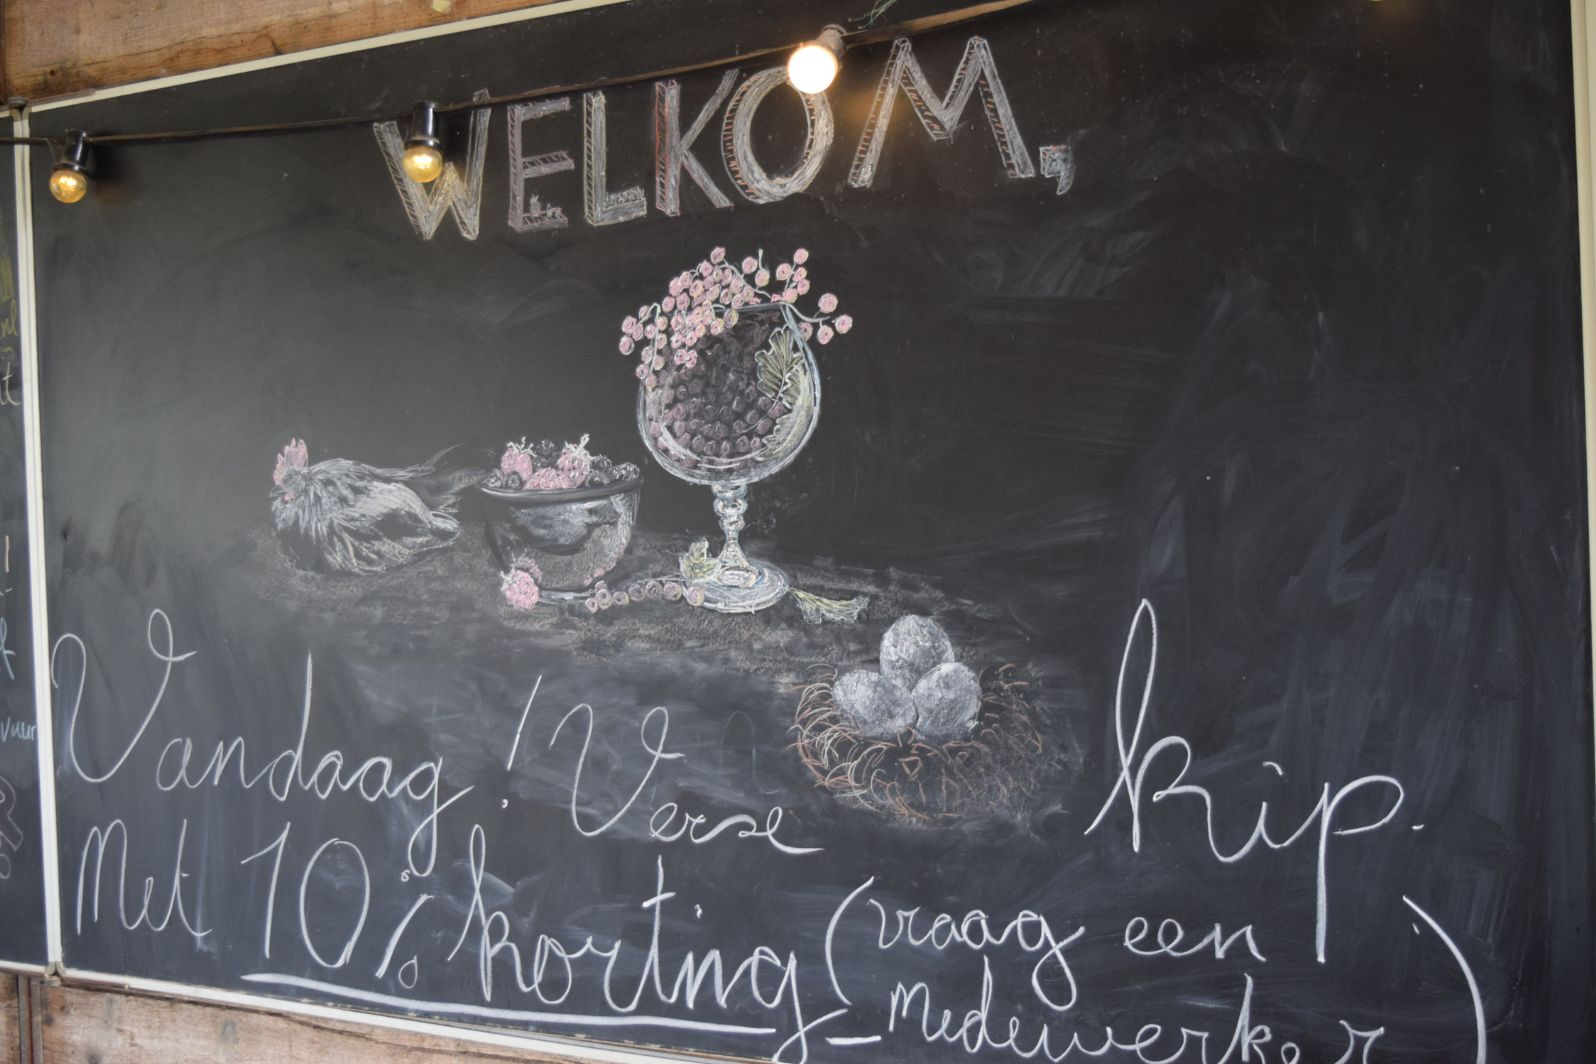 WELKOM,
Vandaag! Verse kip.
Met 10% korting (vraag een
medewerker)
vuur